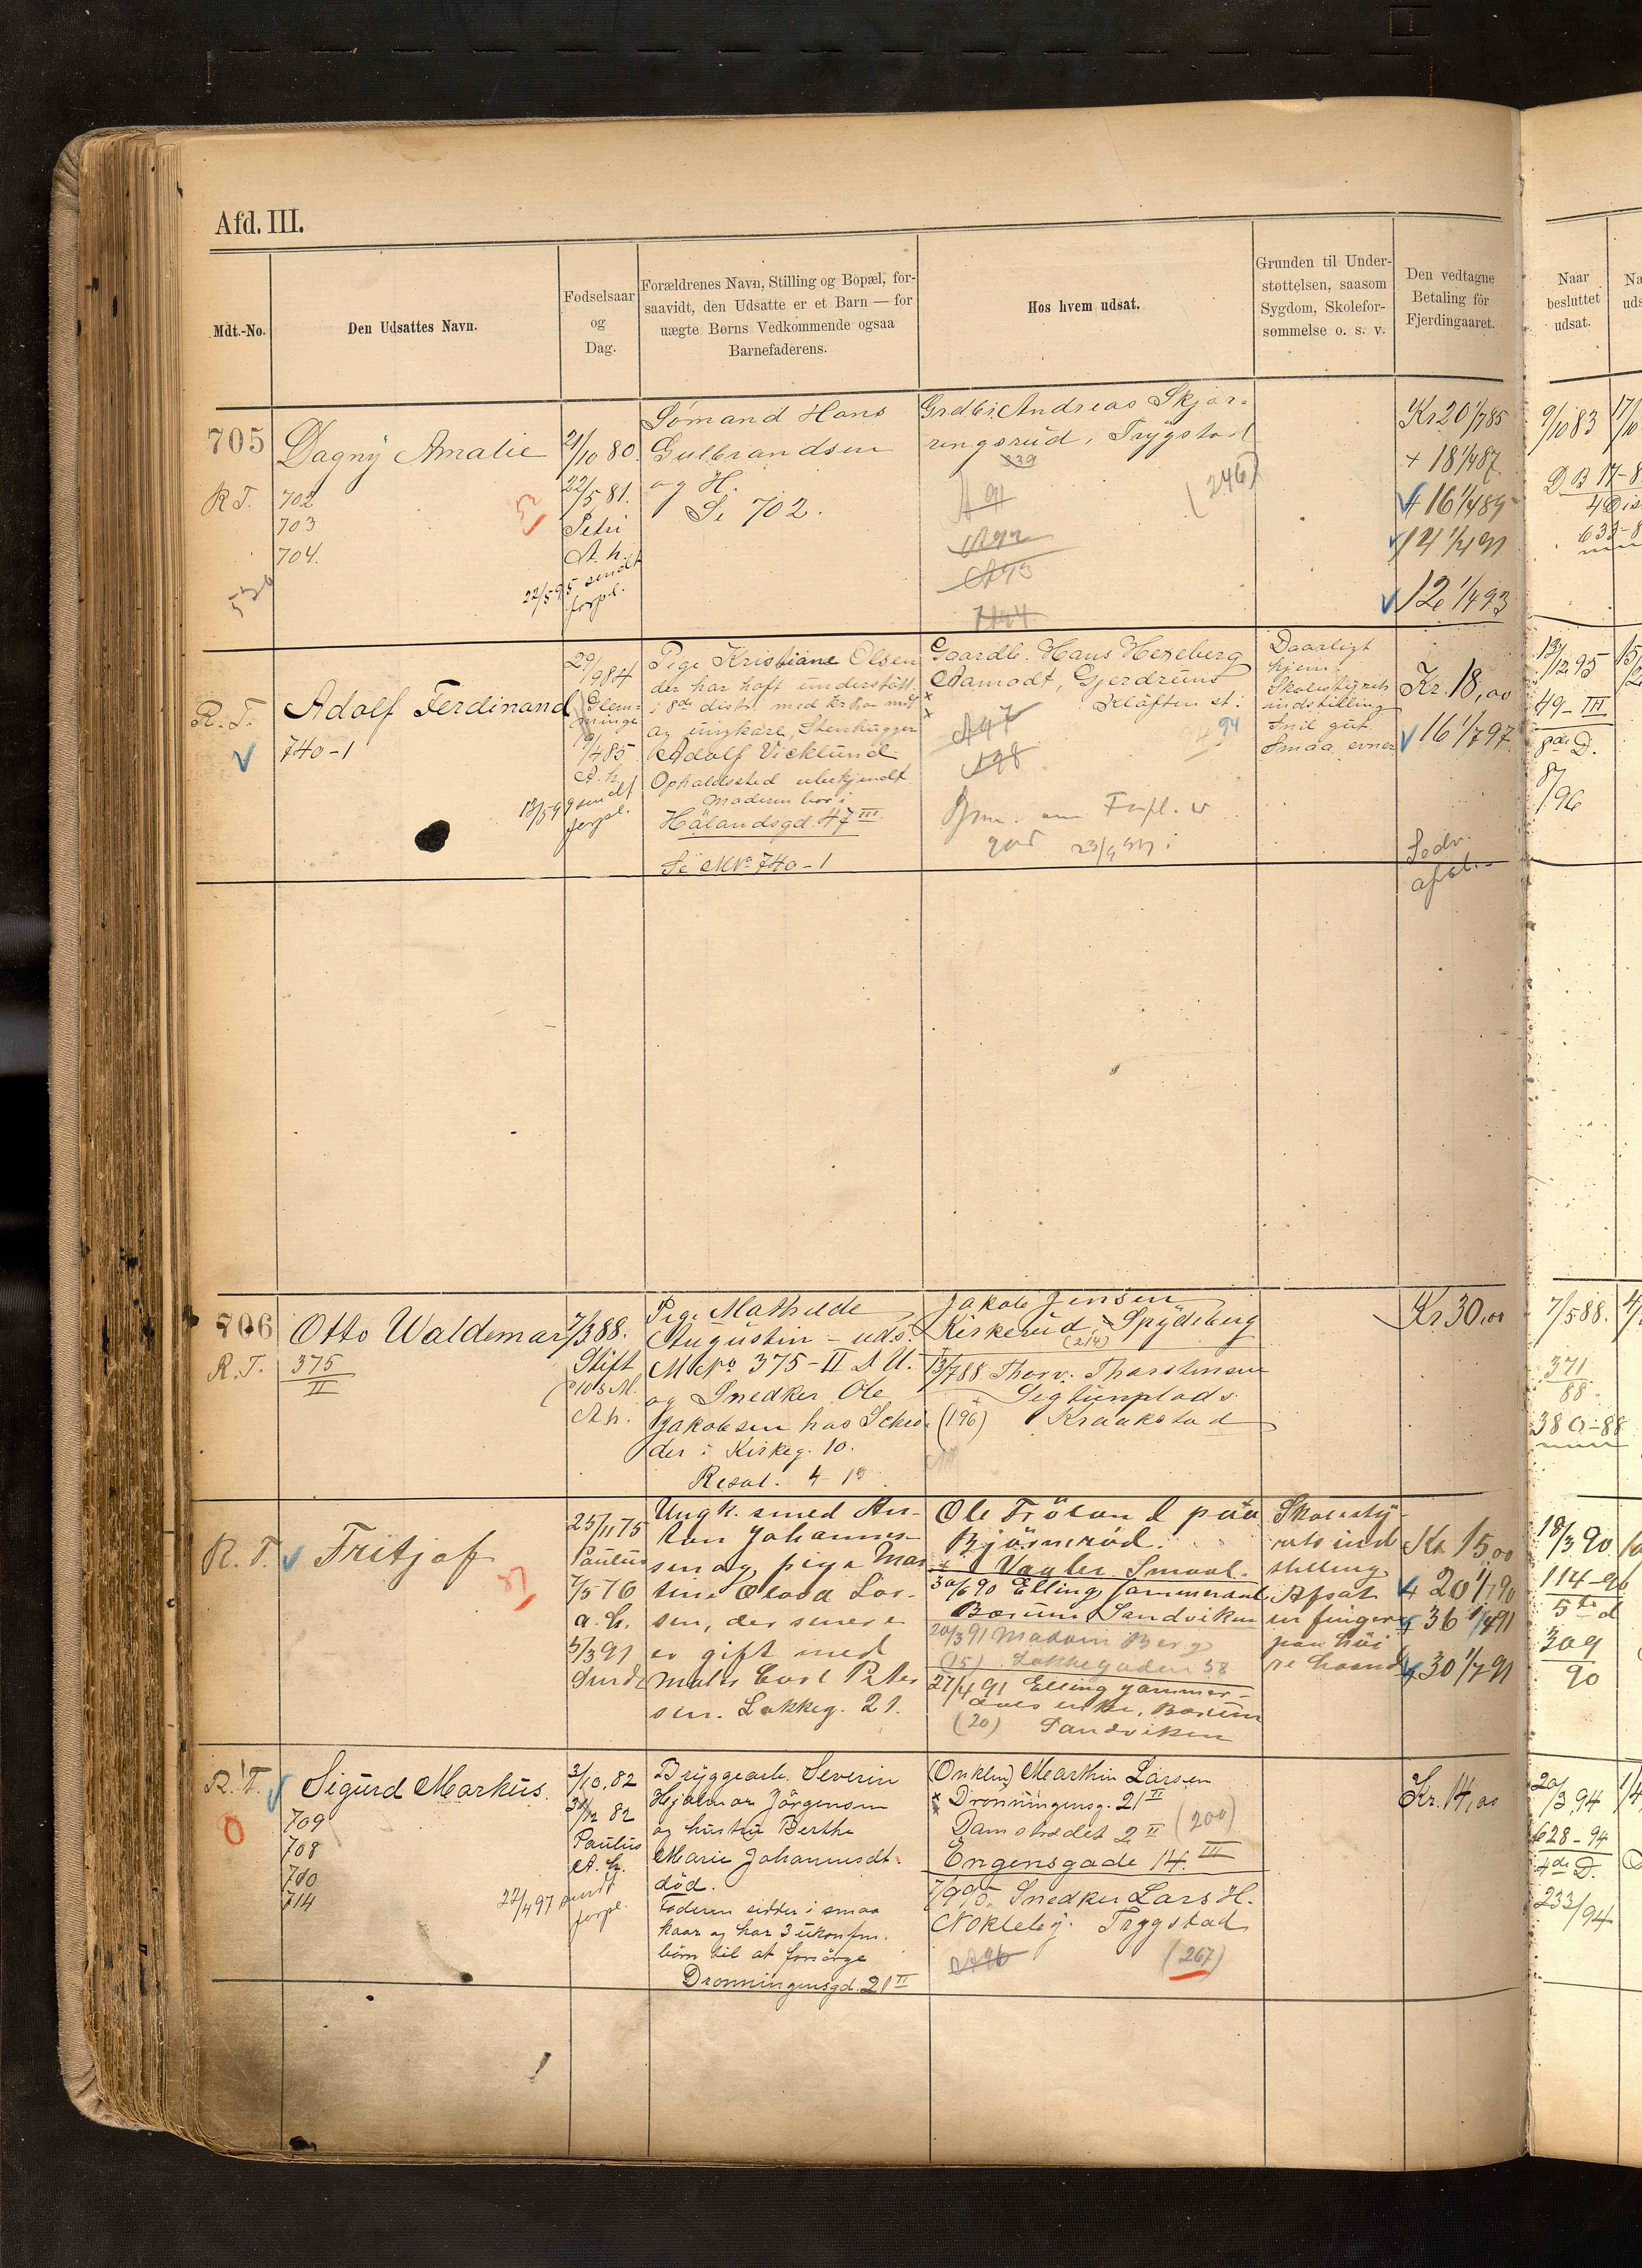 Afd. III.
Mdt.-No.
Den Udsattes Navn.
Fødselsaar
og
Dag.
Forældrenes Navn, Stilling og Bopæl, for-
saavidt, den Udsatte er et Barn — for
uægte Børns Vedkommende ogsaa
Barnefaderens.
Hos hvem udsat.
Grunden til Under-
støttelsen, saasom
Sygdom, Skolefor-
sømmelse o. s. v.
Den vedtagne
Betaling for
Fjerdingaaret.
Naar
besluttet
udsat.
705
R.T.
Dagny Amalie
702
703
704.
21/10 80.
22/5 81.
Petri
A. h.
22/5 95 sendt
forpl.
Sømand Hans
Gulbrandsen
og H.
Se 702.
Grdbr. Andreas Skjør-
ringsrud, Trygstad
339
(246)
A 91
A 92
A 93
Kr 20 1/7 85
+ 18 1/4 87.
+ 16 1/4 89
14 1/4 91
12 1/4 93
9/10 83
R.T.
Adolf Ferdinand
740-1
29/9 84
Glem-
minge
9/4 85
A. h.
13/5 99 sendt
forpl.
Pige Kristiane Olsen
der har haft understøtt.
i 8de distr. med
og ungkarl, Stenhugger
Adolf Vicklund
Opholdssted ubekjendt
Moderen bor i
Hålandsgd. 47 III
Se M No 740-1
Gaardb. Hans Hexeberg
Aamodt, Gjerdrum
Kløften st.
A 97
A 98
94
23/9
Daarligt
hjem.
Skolestyrets
indstilling
Snil gut
Smaa evner
Kr. 18,00
16 1/7 97
13/12 95
49-III
8de D.
87/96
706
R.T.
Otto Waldemar
375
II
7/3 88.
Stift
A.h.
Pige Mathilde
Augustin - uds.
M No 375-II A U.
og Snedker Ole
Jakobsen hos Schrø-
der i Kirkeg. 10.
Resol. 4-13
Jakob Jensen
Kirkerud i Spydeberg
(214)
13/7 88 Thorv. Thorstensen
Seglunplads
(196) Kraakstad
Kr 30,00
7/5 88.
371
88.
380-88
R.T.
Fritjof
25/11 75
Paulus
7/5 76
a. h.
3/3 91
Ungk. smed An-
ton Johannes-
sen og pige Mar-
tine Olava Lar-
sen, der senere
er gift med
maler Carl Peter
sen. Lakkeg. 21.
Ole Frøland paa
Bjørnerød.
Vaaler Smaal.
30/6 90 Elling Jammerdal
Bærum Sandviken
20/3 91 Madam Berg
(15) Lakkegaden 58
27/4 91 Elling Jammer-
dals enke, Bærum
(20) Sandviken
Skolesty-
rets ind
stilling
Afsat
en finger
paa høi
re haand
Kr 15,00
+ 20 1/7 90
+ 36 1/4 91
+ 30 1/7 91
18/3 90
114-90
5te d
309
90
R.T.
Sigurd Markus.
709
708
710
714
3/10. 82
31/12 82
Paulus
A. h.
27/4 97 sendt
forpl.
Bryggearb. Severin
Hjalmar Jørgensen
og hustru Berthe
Marie Johannesdt.
død.
Faderen sidder i smaa
kaar og har 3 ukonfm.
børn til at forsørge
Dronningensgd. 21 II
(Onklen) Marthin Larsen
Dronningensg. 21 II
Damstrædet 2 II (200)
Engensgade 14. III
7/9 95. Snedker Lars H.
Nokleby. Trygstad
A 96
(267)
Kr. 14,00
20/3. 94
628-94
4de D.
233/94